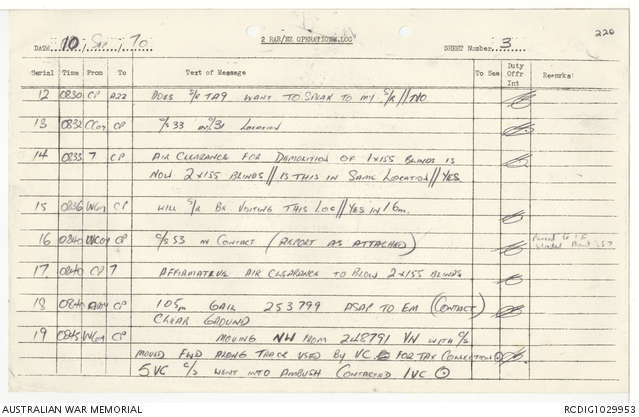 226
2 RAR/NZ OPERATIONS LOG
DATE 10 / Sep / 70 SHEET Number 3
Serial Time From To Text of Message To See Duty Offr Int Remarks
12 0830 CP A22 DOES C/S TA9 WANT TO SPEAK TO MY C/S // NO
13 0832 CP C/S 33 C/S 31 LOCATION
14 0835 7 CP AIR CLEARANCE FOR DEMOLITION OF 1x155 BLINDS IS
NOW 2x155 BLINDS // IS THIS IN SAME LOCATION // YES
15 0836 CP WILL BE VISITING THIS LOC // YES IN 16m.
16 0840 CP C/S 53 IN CONTACT (REPORT AS ATTACHED)
17 0840 CP 7 AFFIRMATIVE AIR CLEARANCE TO BLOW 2x155 BLINDS
18 0840 CP 105m 253799 ASAP TO EM (CONTACT)
CLEAR GROUND
19 0845 CP MOVING NW FROM 248791 VN WITH C/S
MOVED FWD ALONG TRACK USED BY VC FOR TAX COLLECTION
5 VC C/S WENT INTO AMBUSH CONTACTED 1 VC
AUSTRALIAN WAR MEMORIAL RCDIG1029953